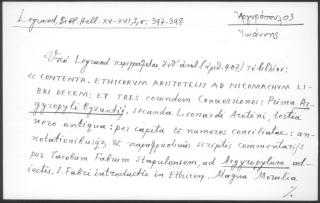 Legrand, Bibl. Hell. XV-XVI, 3, σ. 397-398
Ἀργυρόπουλος
Ἰωάννης
Ὑπὸ Legrand περιγράφεται, ὑπ' ἀριθ. 407) τὸ βιβλίον:
CONTENTA. ETHICORVM ARISTOTELIS AD NICOMACHVM LI-
BRI DECEM: ET TRES eorundem Conuersiones: Prima Ar-
gyropyli Byzantij, secunda Leonardi Aretini, tertia
uero antiqua: per capita & numeros conciliatae: an-
notationibusq;, & παραφραστικοῖς scriptis commentarijs
per Iacobum Fabrum Stapulensem, ad Argyropylum ad-
iectis. I. Fabri introductio in Ethicen. Magna Moralia
%